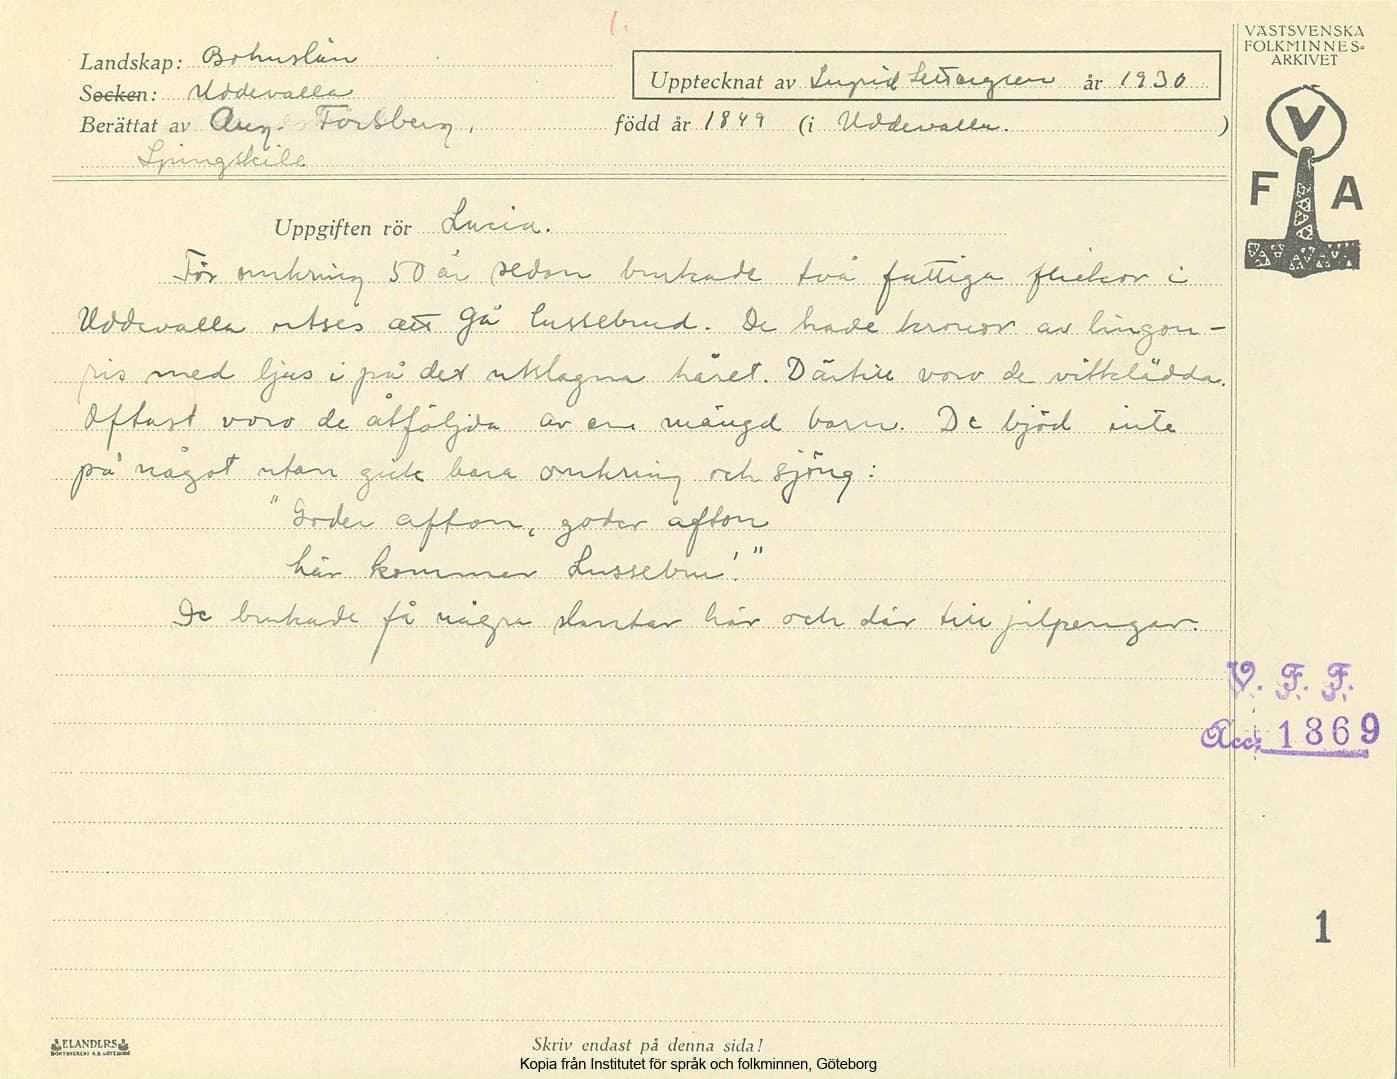 1.
VÄSTSVENSKA
FOLKMINNES-
ARKIVET
V
F A
Landskap: Bohuslän
Upptecknat av Ingrid Settergren år 1930
Socken: Uddevalla
Berättat av Aug. Forsberg, född år 1849 (i Uddevalla. )
Ljungskile
Uppgiften rör Lucia.
För omkring 50 år sedan brukade två fattiga flickor i
Uddevalla utses att gå lussebrud. De hade kronor av lingon-
ris med ljus i på det utslagna håret. Därtill voro de vitklädda.
Oftast voro de åtföljda av en mängd barn. De bjöd inte
på något utan gick bara omkring och sjöng:
"Goder afton, goder afton
här kommer Lussebru!"
De brukade få några slantar här och där till julpengar.
V. F. F.
Acc: 1869
1
ELANDERS
BOKTRYCKERI A.B. GÖTEBORG
Skriv endast på denna sida!
Kopia från Institutet för språk och folkminnen, Göteborg